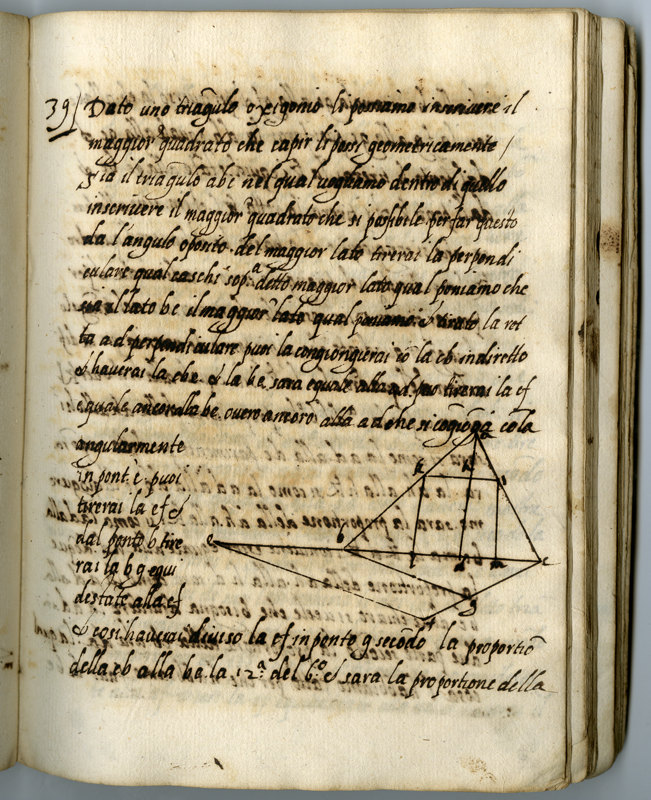 39 Dato uno triãgulo oxigonio li possiamo inscrivere il
maggior quadrato che capir li possi geometricamente /
Sia il triãgulo abc nel qual vogliamo dentro di quello
inscrivere il maggior quadrato che si possibile per far questo
da l'angulo oposito del maggior lato tirerai la perpendi
culare qual caschi sop.ª detto maggior lato qual poniamo che
sia il lato bc il maggior lato qual poniamo. & tirato la ret
ta ad perpendiculare puoi la congiongerai cõ la cb indiretto
& haverai la cbe. & la be sara equale alla ad poi tirerai la cf
equale ancor alla be overo ancora alla ad che si cõgiõga cõ la
angularmente
in pont c. puoi
tirerai la ef &
dal ponto b tire
rai la bg equi
destãte alla ef
& cosi haverai diviso la cf in ponto g secõdo la proportiõ
della cb alla be. la 12.ª del 6.º & sara la proportione della
a
k
h
i
e
b
l
d
m
c
g
f